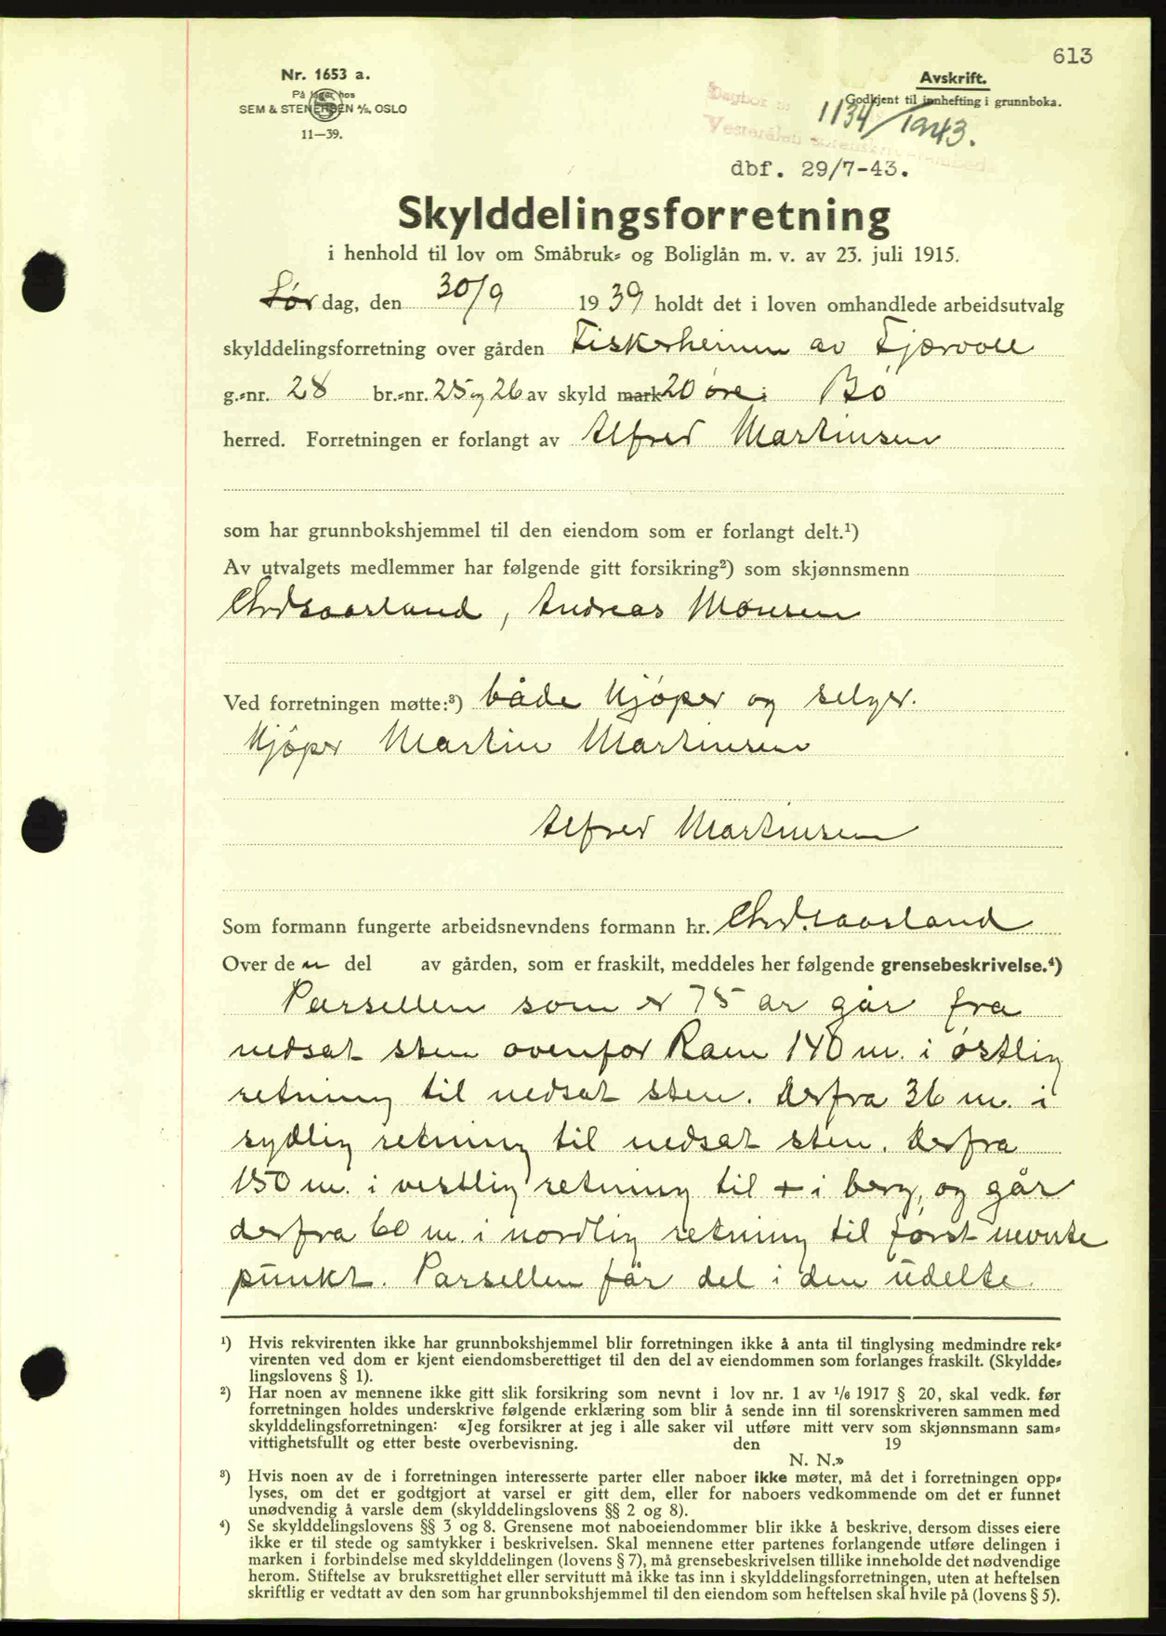 613
Nr. 1653 a.
På lager hos
SEM & STENERSEN A/S, OSLO
11—39.
Avskrift.
Godkjent til innhefting i grunnboka.
Dagbok
1134/1943.
Vesterålen sorenskriverembede
dbf. 29/7-43.
Skylddelingsforretning
i henhold til lov om Småbruk= og Boliglån m. v. av 23. juli 1915.
Lørdag, den 30/9 1939 holdt det i loven omhandlede arbeidsutvalg
skylddelingsforretning over gården Fiskerheimen av Fjærvoll
g.=nr. 28 br.=nr. 25 og 26 av skyld mark 20 øre i Bø
herred. Forretningen er forlangt av Alfred Martinsen
som har grunnbokshjemmel til den eiendom som er forlangt delt.¹)
Av utvalgets medlemmer har følgende gitt forsikring²) som skjønnsmenn
Chr. Saarland, Andreas Monsen
Ved forretningen møtte:³) både kjøper og selger.
Kjøper Martin Martinsen
Alfred Martinsen
Som formann fungerte arbeidsnevndens formann hr. Chr. Saarland
Over den del av gården, som er fraskilt, meddeles her følgende grensebeskrivelse.⁴)
Parsellen som er 75 ar går fra
nedsat sten ovenfor Raen 140 m. i østlig
retning til nedsat sten. Derfra 36 m. i
sydlig retning til nedsat sten. Derfra
150 m. i vestlig retning til + i berg, og går
derfra 60 m. i nordlig retning til først nevnte
punkt. Parsellen får del i den udelte
¹) Hvis rekvirenten ikke har grunnbokshjemmel blir forretningen ikke å anta til tinglysing medmindre rek=
virenten ved dom er kjent eiendomsberettiget til den del av eiendommen som forlanges fraskilt. (Skyldde=
lingslovens § 1).
²) Har noen av mennene ikke gitt slik forsikring som nevnt i lov nr. 1 av 1/6 1917 § 20, skal vedk. før
forretningen holdes underskrive følgende erklæring som blir å sende inn til sorenskriveren sammen med
skylddelingsforretningen: «Jeg forsikrer at jeg i alle saker vil utføre mitt verv som skjønnsmann sam=
vittighetsfullt og etter beste overbevisning. den 19
N. N.»
³) Hvis noen av de i forretningen interesserte parter eller naboer ikke møter, må det i forretningen opp=
lyses, om det er godtgjort at varsel er gitt dem, eller for naboers vedkommende om det er funnet
unødvendig å varsle dem (skylddelingslovens §§ 2 og 8).
⁴) Se skylddelingslovens §§ 3 og 8. Grensene mot naboeiendommer blir ikke å beskrive, dersom disses eiere
ikke er til stede og samtykker i beskrivelsen. Skal mennene etter partenes forlangende utføre delingen i
marken i forbindelse med skylddelingen (lovens § 7), må grensebeskrivelsen tillike inneholde det nødvendige
herom. Stiftelse av bruksrettighet eller servitutt må ikke tas inn i skylddelingsforretningen, uten at heftelsen
skriftlig er vedtatt av den som har grunnbokshjemmel til den eiendom som heftelsen skal hvile på (lovens § 5).